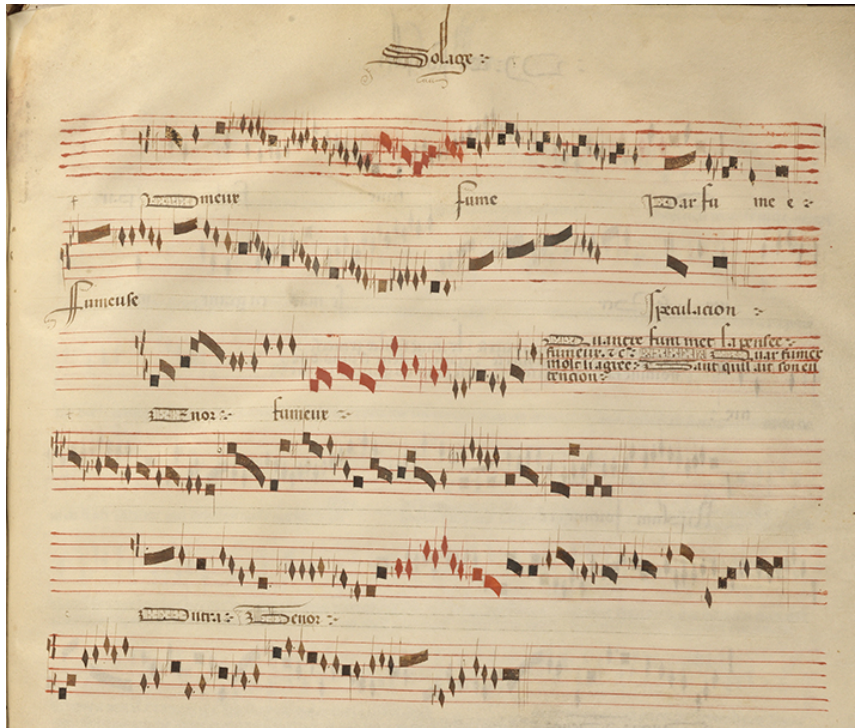 Solage
Fumeux fume Par fumee
Fumeuse Speculacion
Quantre fum met sa pensee
fumeux &c Quar fumer
molt li agree Tant quil ait son en
tencion
Tenor fumeux
Contra Tenor